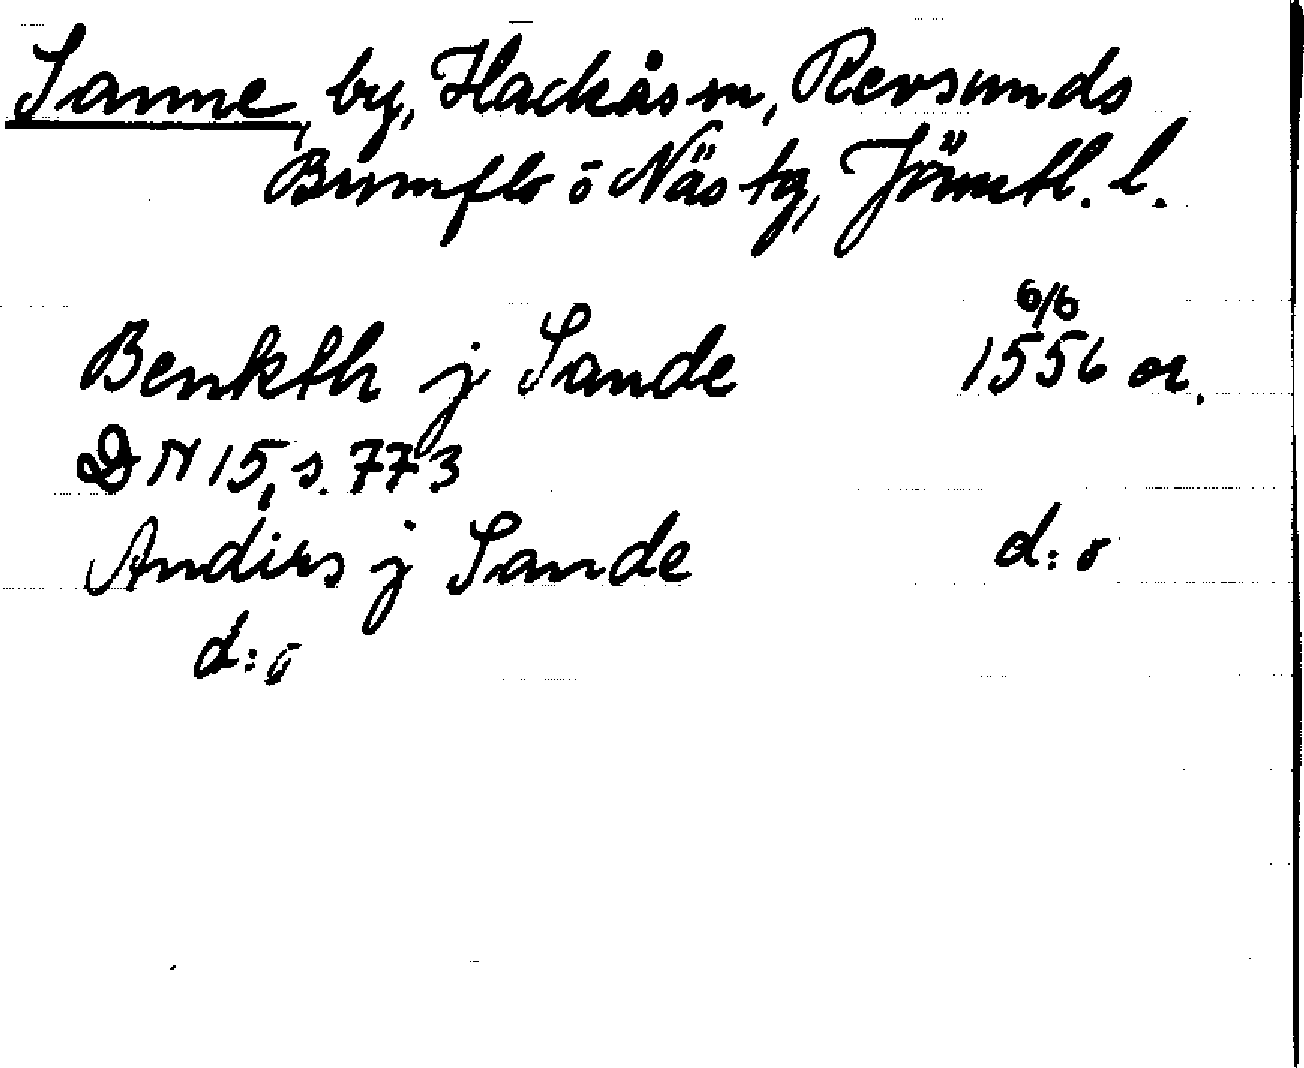 Sanne, by, Hackås sn, Revsunds
Brunflo o Näs tg, Jämtl. l.
6/6
Benkth j Sande 1556 or.
DN 15, s. 773
Anders j Sande d:o
d:o